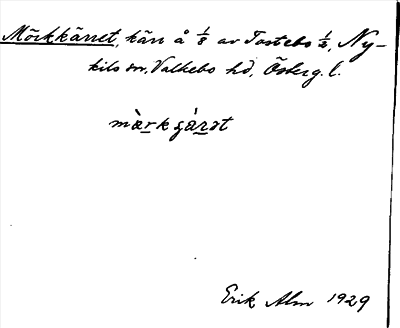 Mörkkärret, kärr å 1/8 av Tostebo 1/2, Ny-
kils sn, Valkebo hd, Österg. l.
mὰrkɕάrət
Erik Alm 1929